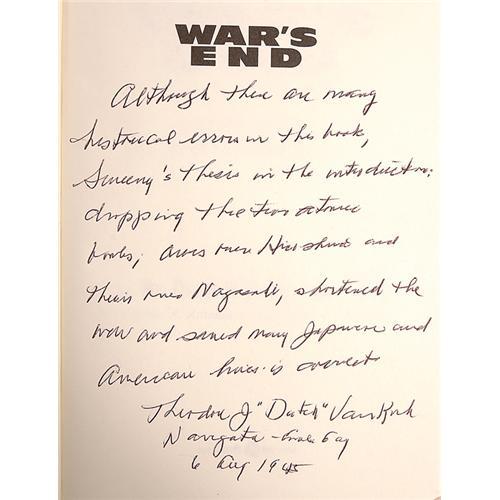 WAR'S
END
Although there are many
historical errors in this book,
Sweeney's thesis in the introduction:
dropping the two atomic
bombs, ours over Hiroshima and
theirs over Nagasaki, shortened the
war and saved many Japanese and
American lives is correct
Theodore J "Dutch" VanKirk
Navigator - Enola Gay
6 Aug 1945